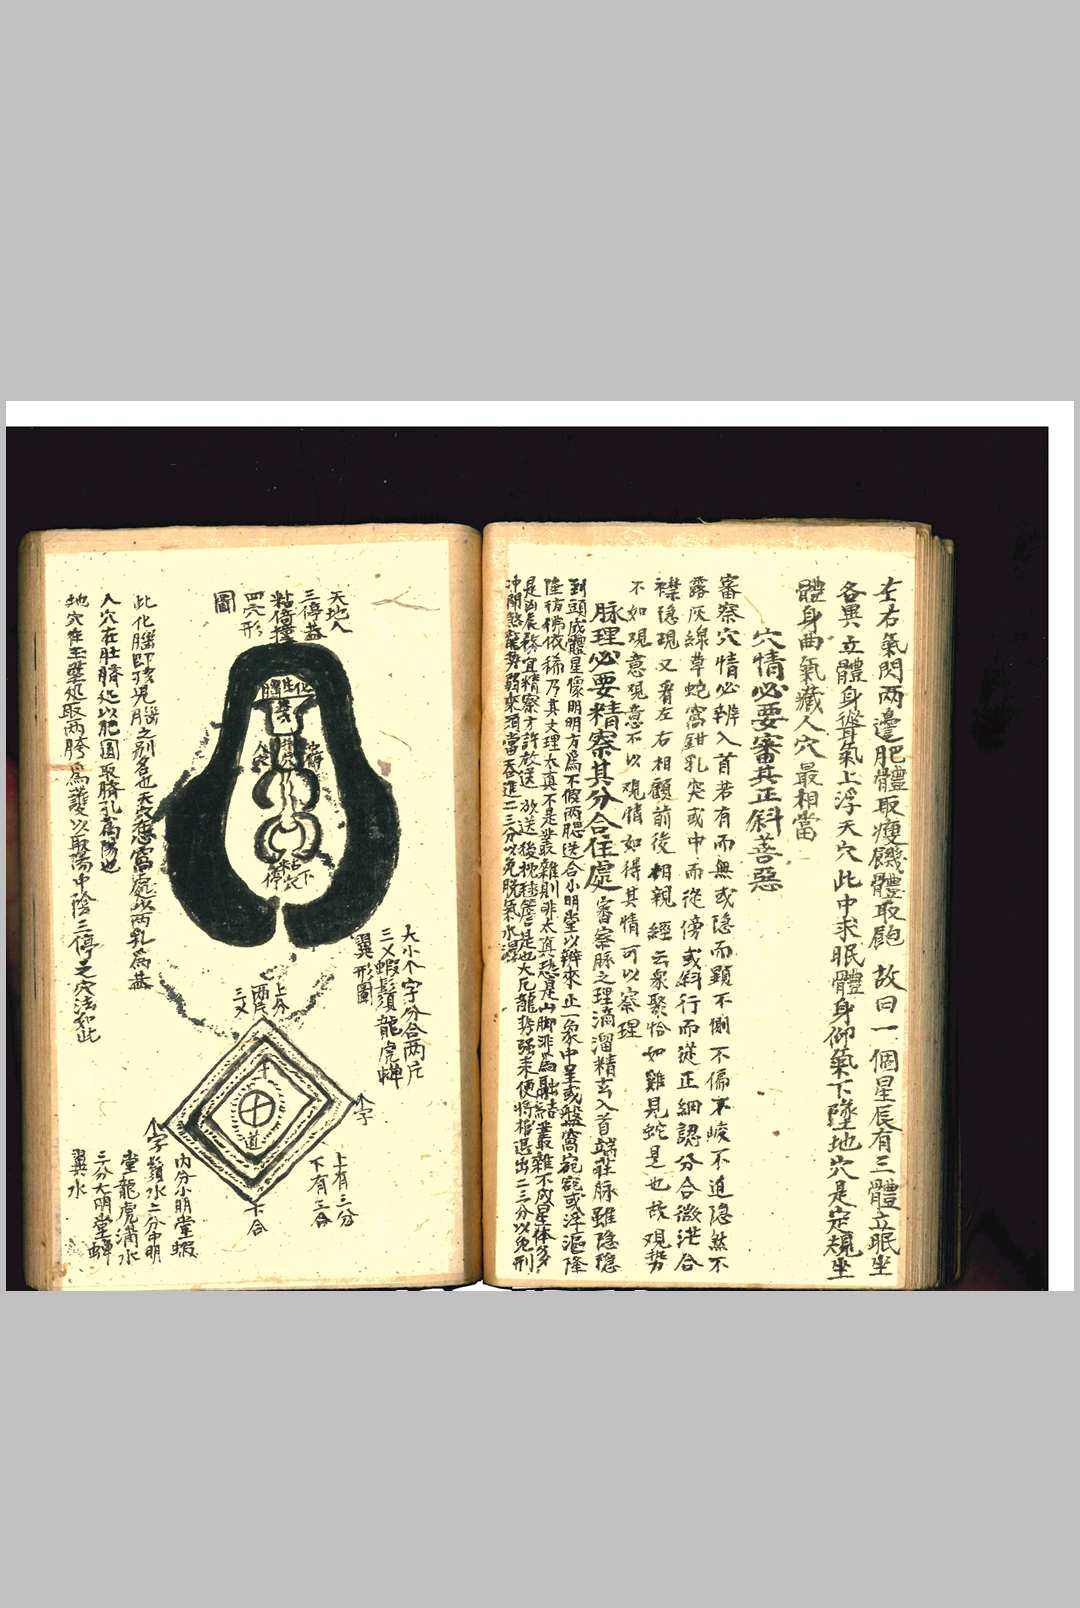 左右氣閃兩邊肥體取瘦饑體取飽 故曰一個星辰有三體立眠坐
各異立體身聳氣上浮天穴此中求眠體身仰氣下墜地穴是定規坐
體身曲氣藏人穴最相當
穴情必要審其正斜善惡
審察穴情必辨入首若有而無或隐而顯不側不偏不峻不迫隐然不
露灰線草蛇窩鉗乳突或中而從傍或斜行而從正細認分合微茫合
襟隐現又看左右相顧前後相親 經云衆聚恰如雞見蛇是也故观势
不如观意观意不以观情如得其情可以察理
脉理必要精察其分合住處 審察脉之理滴溜精玄入首端莊脉雖隐隐
到頭成體星像明明方爲不假兩腮送合小明堂以辨來正一象中呈或盤窩宛宛或浮漚隆
隆彷彿依稀乃其文理太真不是叢雜則非太真恐是山脚非爲融結叢雜不成星体多
是凶辰務宜精察方許放送 放送後枕毬簷是也大凡龍势强来便将棺退出二三分以免刑
冲鬪煞龍势弱來須當吞進二三分以免脱氣水濕
天地人
三停葢
粘倚撞
四穴形
圖
化生腦
天穴
人穴
地穴
大小个字分合两片
三义蝦鬚龍虎蟬
翼形圖
上分
两片
三义
个字
个字
十道
下合
上有三分
下有三合
内分小明堂蝦
鬚水二分中明
堂龍虎滴水
三分大明堂蟬
翼水
此化腦即孩児腦之别名也天穴在窩處以两乳爲葢
人穴在肚臍処以肥圓取臍孔爲陽也
地穴在玉莖処取两胯爲護以取陽中陰三停之穴法如此